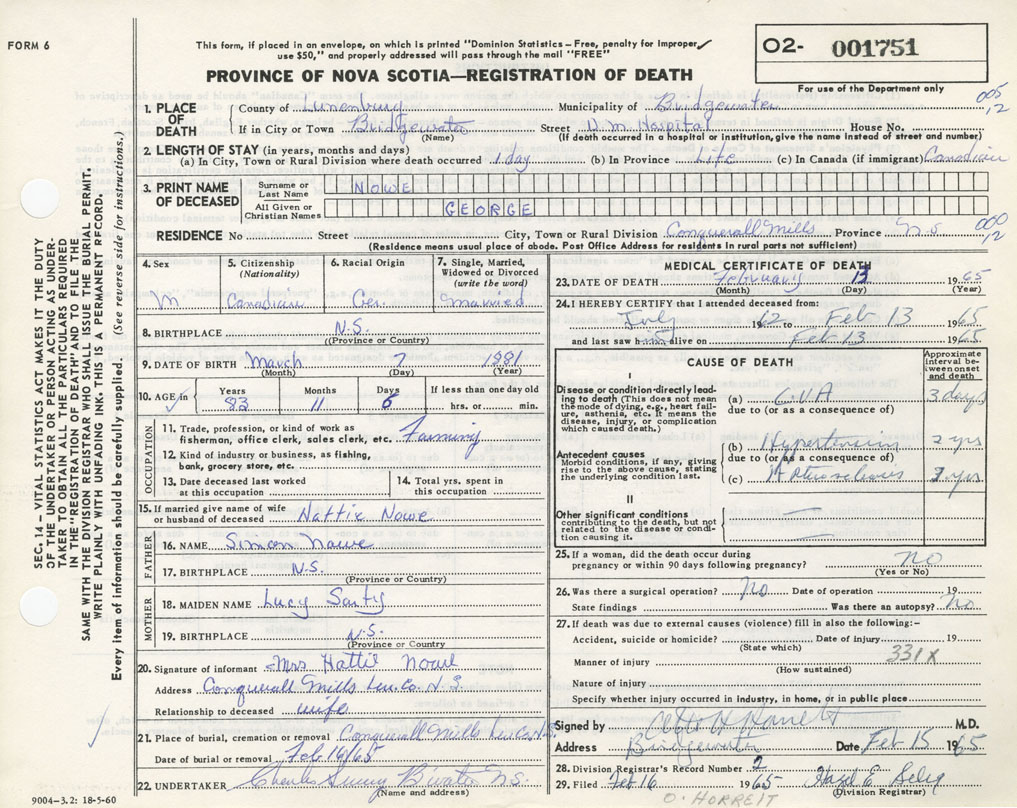 FORM 6
This form, if placed in an envelope, on which is printed "Dominion Statistics–Free, penalty for improper
use $50," and properly addressed will pass through the mail "FREE"
PROVINCE OF NOVA SCOTIA—REGISTRATION OF DEATH
O2- 001751
For use of the Department only
005
,12
1. PLACE OF DEATH
County of Lunenburg Municipality of Bridgewater
If in City or Town Bridgewater Street D.M. Hospital House No.
(Name) (If death occurred in a hospital or institution, give the name instead of street and number)
2. LENGTH OF STAY (in years, months and days)
(a) In City, Town or Rural Division where death occurred 1 day (b) In Province Life (c) In Canada (if immigrant) Canadian
3. PRINT NAME OF DECEASED
Surname or Last Name NOWE
All Given or Christian Names GEORGE
000
,12
RESIDENCE No Street City, Town or Rural Division Conquerall Mills Province N.S
(Residence means usual place of abode. Post Office Address for residents in rural parts not sufficient)
4. Sex M
5. Citizenship (Nationality) Canadian
6. Racial Origin Ger.
7. Single, Married, Widowed or Divorced (write the word) Married
8. BIRTHPLACE N.S.
(Province or Country)
9. DATE OF BIRTH March 7 1881
(Month) (Day) (Year)
10. AGE in Years 83 Months 11 Days 6 If less than one day old hrs. or min.
OCCUPATION
11. Trade, profession, or kind of work as fisherman, office clerk, sales clerk, etc. Farming
12. Kind of industry or business, as fishing, bank, grocery store, etc.
13. Date deceased last worked at this occupation
14. Total yrs. spent in this occupation
15. If married give name of wife or husband of deceased Hattie Nowe
FATHER
16. NAME Simon Nowe
17. BIRTHPLACE N.S.
(Province or Country)
MOTHER
18. MAIDEN NAME Lucy Sarty
19. BIRTHPLACE N.S.
(Province or Country
20. Signature of informant Mrs Hattie Nowe
Address Conquerall Mills Lun. Co N.S
Relationship to deceased wife
21. Place of burial, cremation or removal Conquerall Mills Lun Co N.S.
Date of burial or removal Feb 16/65
22. UNDERTAKER Charles B'water N.S.
(Name and address)
9004–3.2: 18-5-60
SEC. 14 – VITAL STATISTICS ACT MAKES IT THE DUTY
OF THE UNDERTAKER OR PERSON ACTING AS UNDER-
TAKER TO OBTAIN ALL THE PARTICULARS REQUIRED
IN THE "REGISTRATION OF DEATH" AND TO FILE THE
SAME WITH THE DIVISION REGISTRAR WHO SHALL ISSUE THE BURIAL PERMIT.
WRITE PLAINLY WITH UNFADING INK. THIS IS A PERMANENT RECORD.
Every item of information should be carefully supplied. (See reverse side for instructions.)
MEDICAL CERTIFICATE OF DEATH
23. DATE OF DEATH February 13 1965
(Month) (Day) (Year)
24. I HEREBY CERTIFY that I attended deceased from:
July 1962 to Feb 13 1965
and last saw him alive on Feb 13 1965
CAUSE OF DEATH
Approximate interval be-tween onset and death
I
Disease or condition directly lead-
ing to death (This does not mean
the mode of dying, e.g., heart fail-
ure, asthenia, etc. It means the
disease, injury, or complication
which caused death.)
(a) C.V.A 3 days
due to (or as a consequence of)
Antecedent causes
Morbid conditions, if any, giving
rise to the above cause, stating
the underlying condition last.
(b) Hypertension 2 yrs
due to (or as a consequence of)
(c) yrs
II
Other significant conditions
contributing to the death, but not
related to the disease or condi-
tion causing it.
25. If a woman, did the death occur during
pregnancy or within 90 days following pregnancy? no
(Yes or No)
26. Was there a surgical operation? No Date of operation 19
State findings Was there an autopsy? No
27. If death was due to external causes (violence) fill in also the following:–
Accident, suicide or homicide? Date of injury 19
(State which)
331X
Manner of injury
(How sustained)
Nature of injury
Specify whether injury occurred in industry, in home, or in public place
Signed by M.D.
Address Bridgewater Date Feb 15 1965
28. Division Registrar's Record Number 2
29. Filed Feb 16 1965 Hazel E. Selig
(Division Registrar)
O. HORREIT